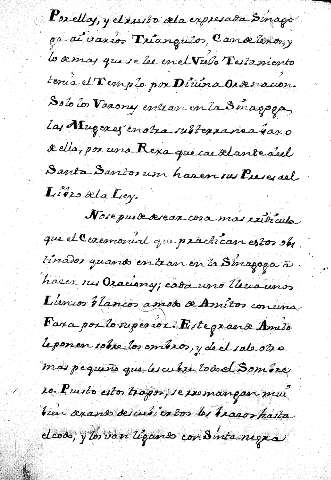 Por ellos, y el resto de la expresada Sinago
ga ai varios Triangulos, Candeleros, y
lo demas que se lee en el Viejo Testamento
tenia el Templo por Divina Ordenacion.
Solo los Varones entran en la Sinagoga
las Mugeres en otra subterranea
de ella, por una Rexa que cae delante del
Santa Santorum hacen sus Preces al
Libro de la Ley.
No se puede desear cosa mas ridicula
que el Ceremonial que practican estos obs
tinados quando entran en la Sinagoga a
hacer sus Oraciones; cada uno lleva unos
Lienzos blancos a modo de Amitos con una
Faxa por lo superior: Este grande Amito
le ponen sobre los ombros, y de el sale otro
mas pequeño que les cubre todo el Sombre
ro. Puesto estos trapos, se arremangan mui
bien dexando descubiertos los brazos hasta
el codo, y los van ligando con Sinta negra